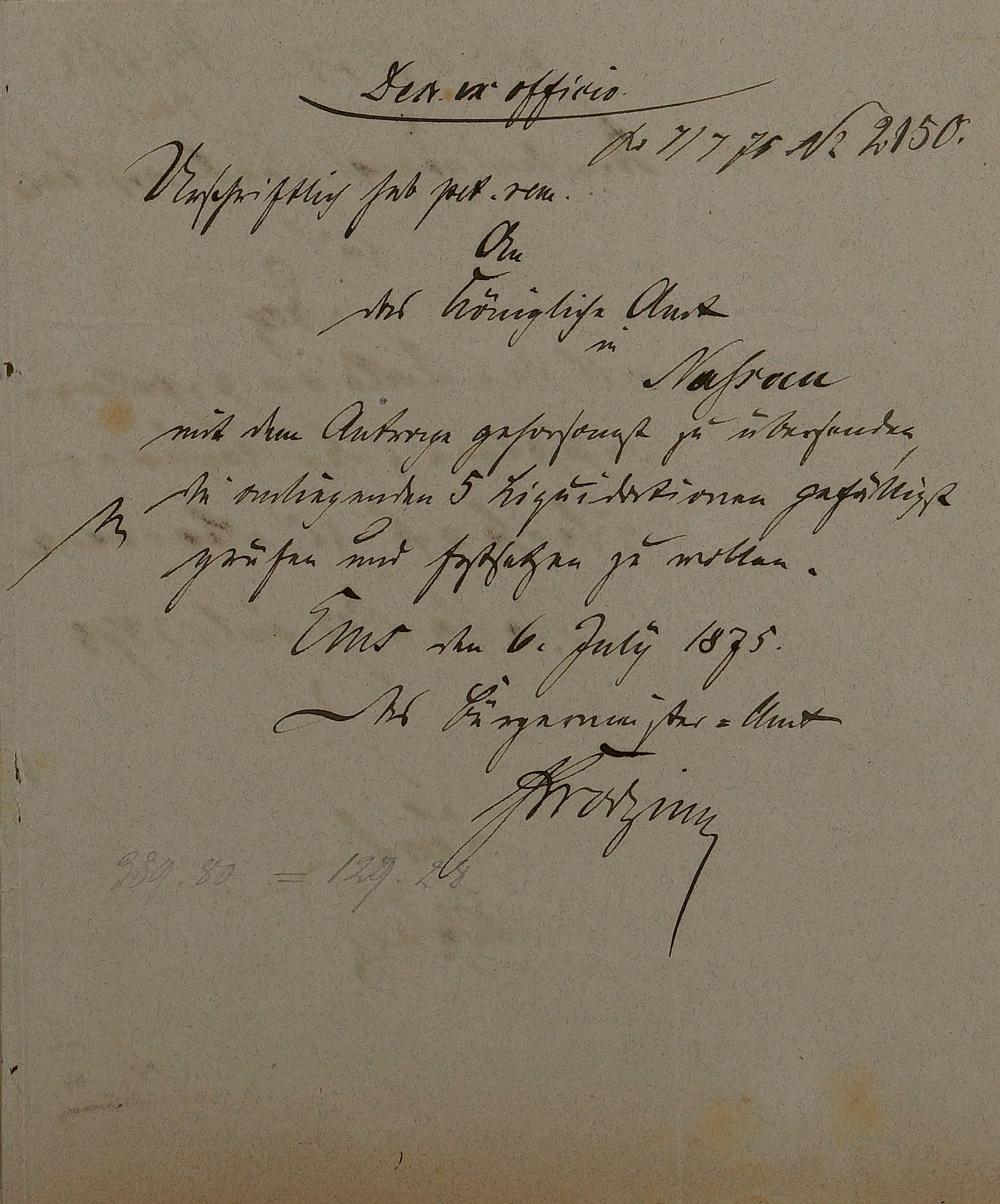 Decr. ex officio
pr 7/7 75 No 2150.
Urschriftlich sub pet. rem.
An
das Königliche Amt
in
Nassau
mit dem Antrage gehorsamst zu übersenden,
die anliegenden 5 Liquidationen gefälligst
prüfen und festsetzen zu wollen.
Ems den 6. July 1875.
Das Bürgermeister=Amt
389.80 = 129.28